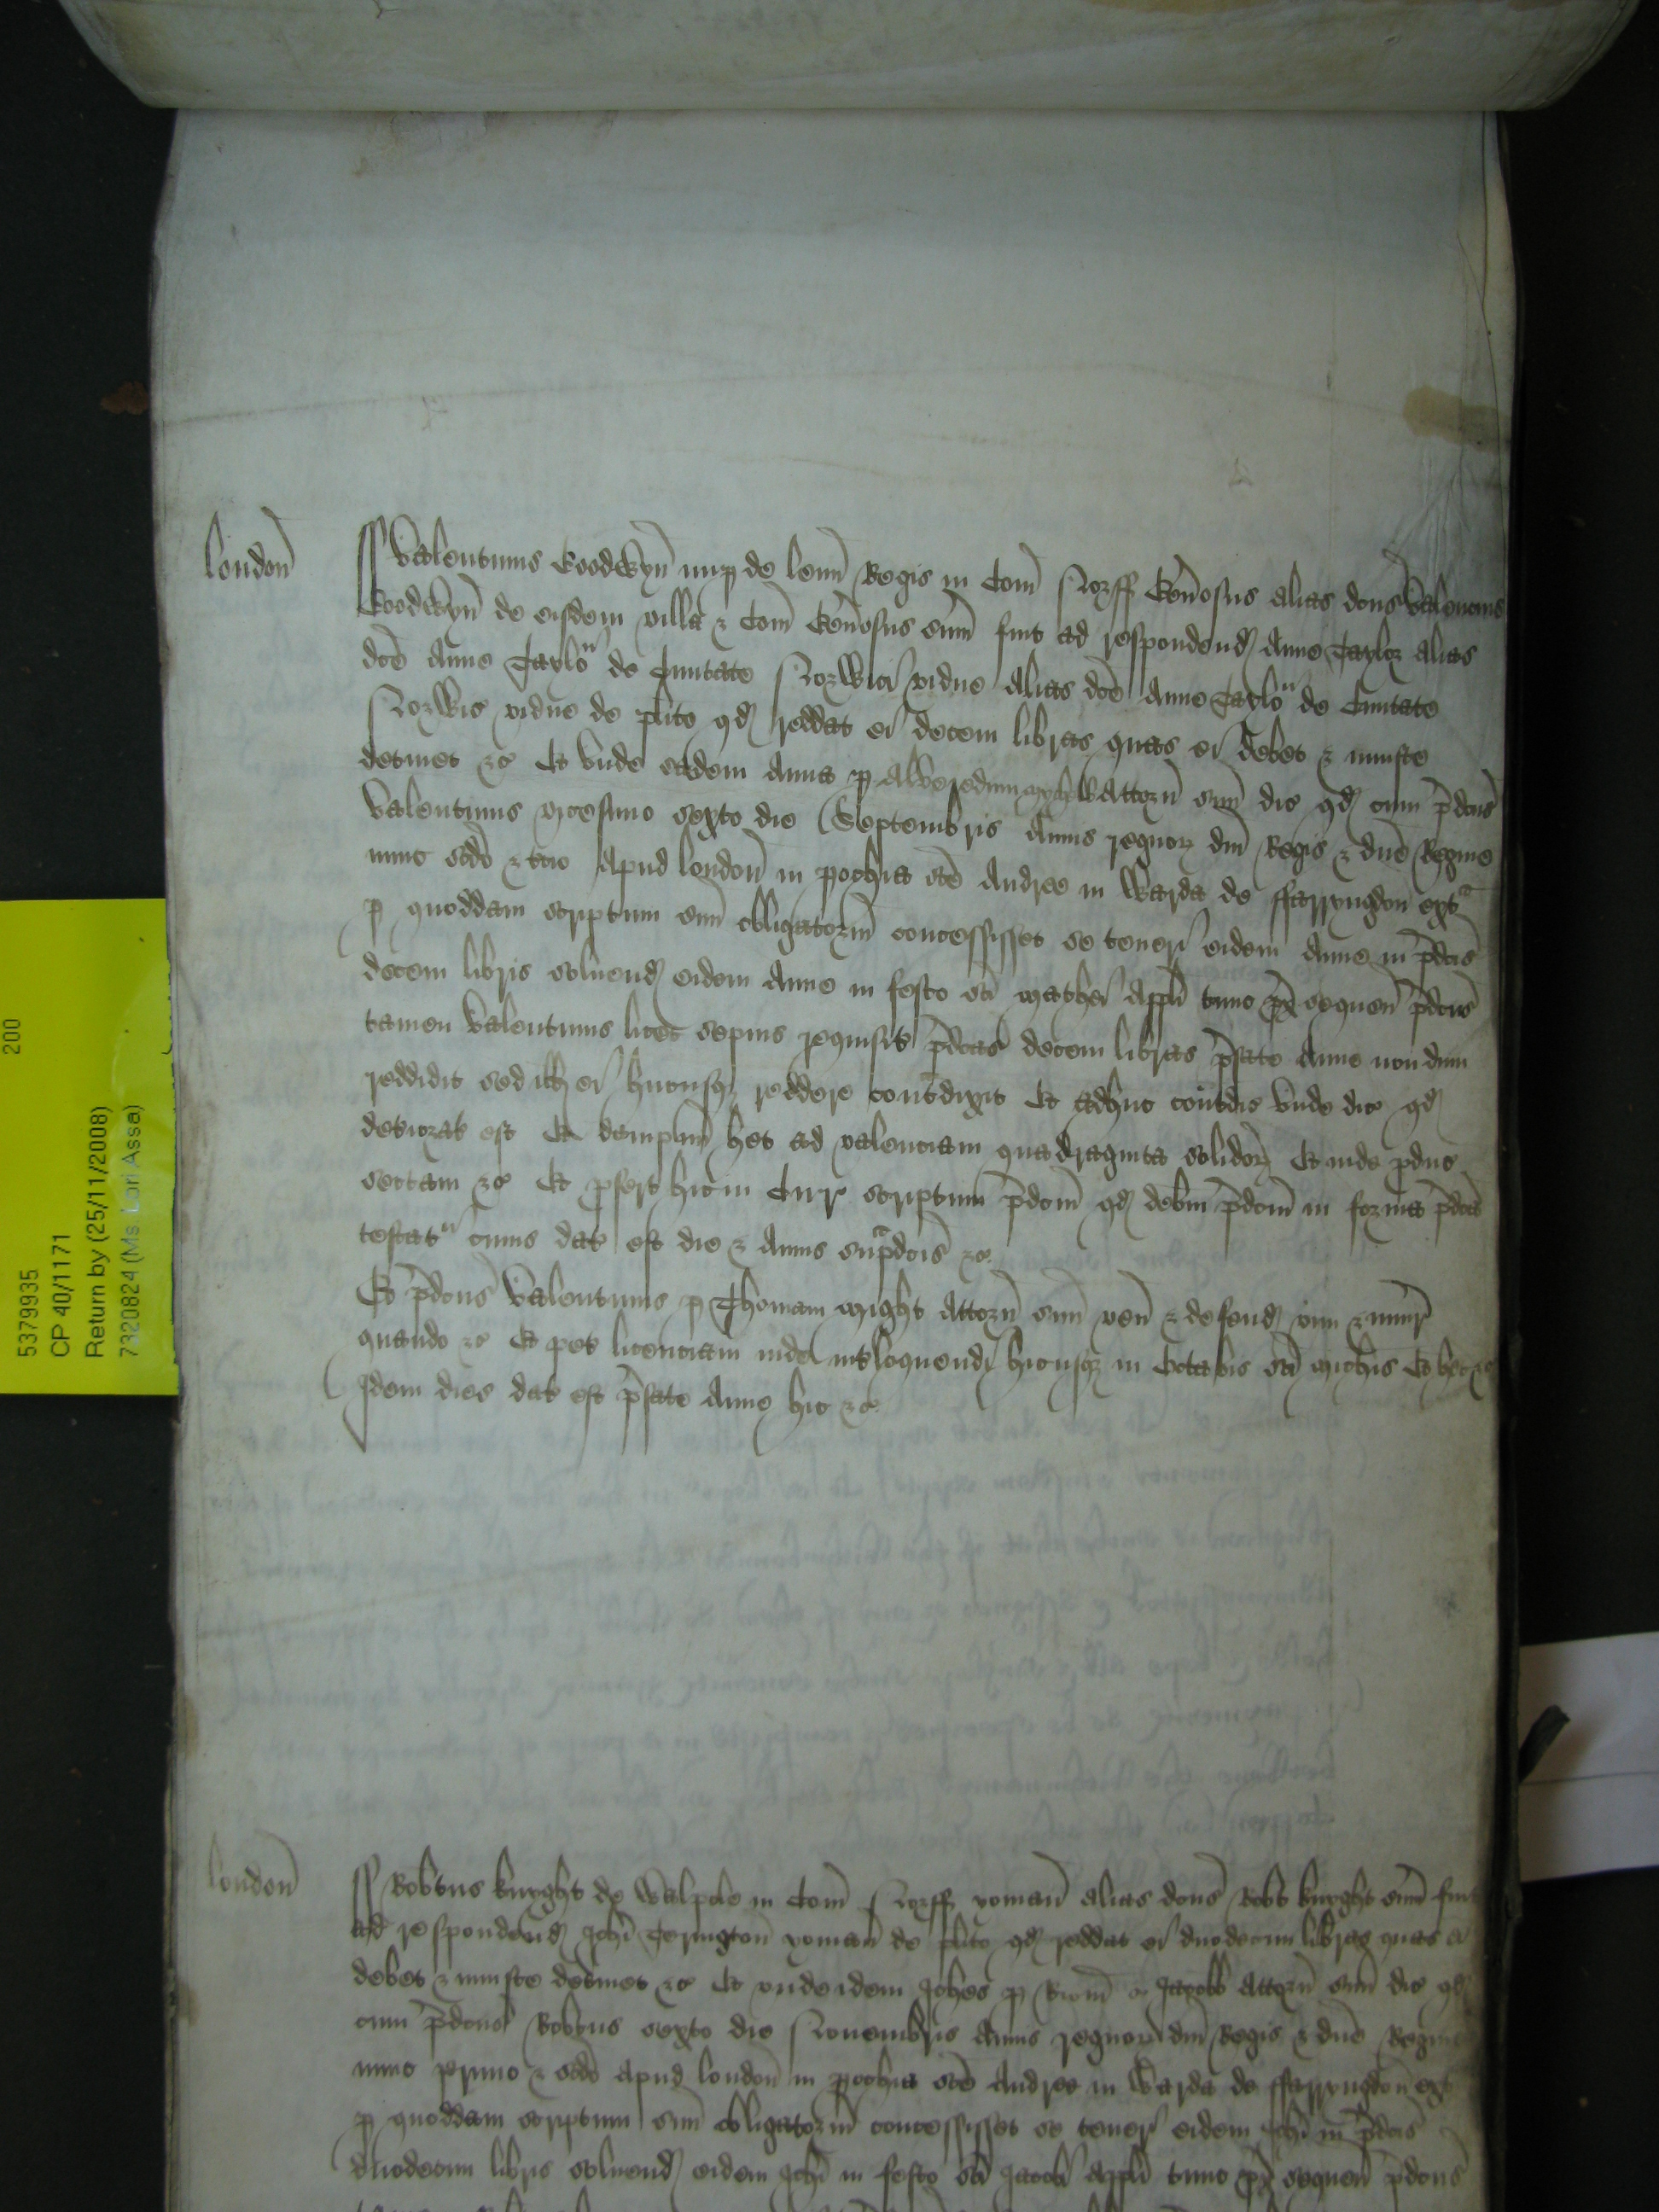 London ss Valentinus Goodwyn nup de Lenn Regis in Com Norff Gen̄osus alias dcūs Valentinus
Goodwyn de eisdem villa & Com Gen̄osus sum̄ fuit ad respondend Anne Taylor alias
dcē Anne Taylor de Civitate Norwici vidue alias dcē Anne Taylor de Civitate
Norwic vidue de plito qd reddat ei decem libras quas ei debet & iniuste
detinet &c Et unde eadem Anna p Alveredum Attorn suū dic qd cum p̄dcūs
Valentinus vicesimo sexto die Septembris Annis regnor dn̄i Regis & dn̄e Regine
nunc scdo & tcio apud London in pochia scī Andree in Warda de ffaryngdon ext̄a
p quoddam scriptum suū obligatoriū concessisset se teneri eidem Anne in p̄dcīs
decem libris solvend eidem Anne in festo scī Mathei Appli tunc px̄ sequen p̄dcūs
tamen Valentinus licet sepius requisit p̄dcas decem libras p̄fate Anne nondum
reddidit sed ill ei hucusq reddere cont̄dixit Et adhuc cont̄dic unde dic qd
deteriorat est Et dampnū het ad valenciam quadraginta solidor Et inde pduc
sectam &c Et pfert hic in Cur scriptum p̄dcm̄ qd debm̄ p̄dcm̄ in forma p̄dca
testatr cuius dat est die & Annis sup̄dcīs &c
Et p̄dcūs Valentinus p Thomam Myght Attorn suū ven & defend vim & iniur
quando &c Et pet licenciam inde int̄loquendi hic usq in Octabis scī Michis Et het &c
Idem dies dat est p̄fate Anne hic &c
London ss Robtus knyght de Walpole in Com Norff yoman alias dcūs Robt knyght sum̄ fuit
ad respondend Johī Terington yoman de plito qd reddat ei duodecim libras quas ei
debet & iniuste detinet &c Et unde idem Johes p Jacobb Attorn suū dic qd
cum p̄dcūs Robtus sexto die Novembris Annis regnor dn̄i Regis & dn̄e Regine
nunc primo & scdo apud London in pochia scī Andree in Warda de ffaryngdon ext
p quoddam scriptum suū obligatoriū concessisset se teneri eidem Johī in p̄dcīs
duodecim libris solvend eidem Johī in festo scī Jacobi Appli tunc px̄ sequen p̄dcūs
5379935 200
CP 40/1171
Return by (25/11/2008)
7320824 (Ms Lori Assa)